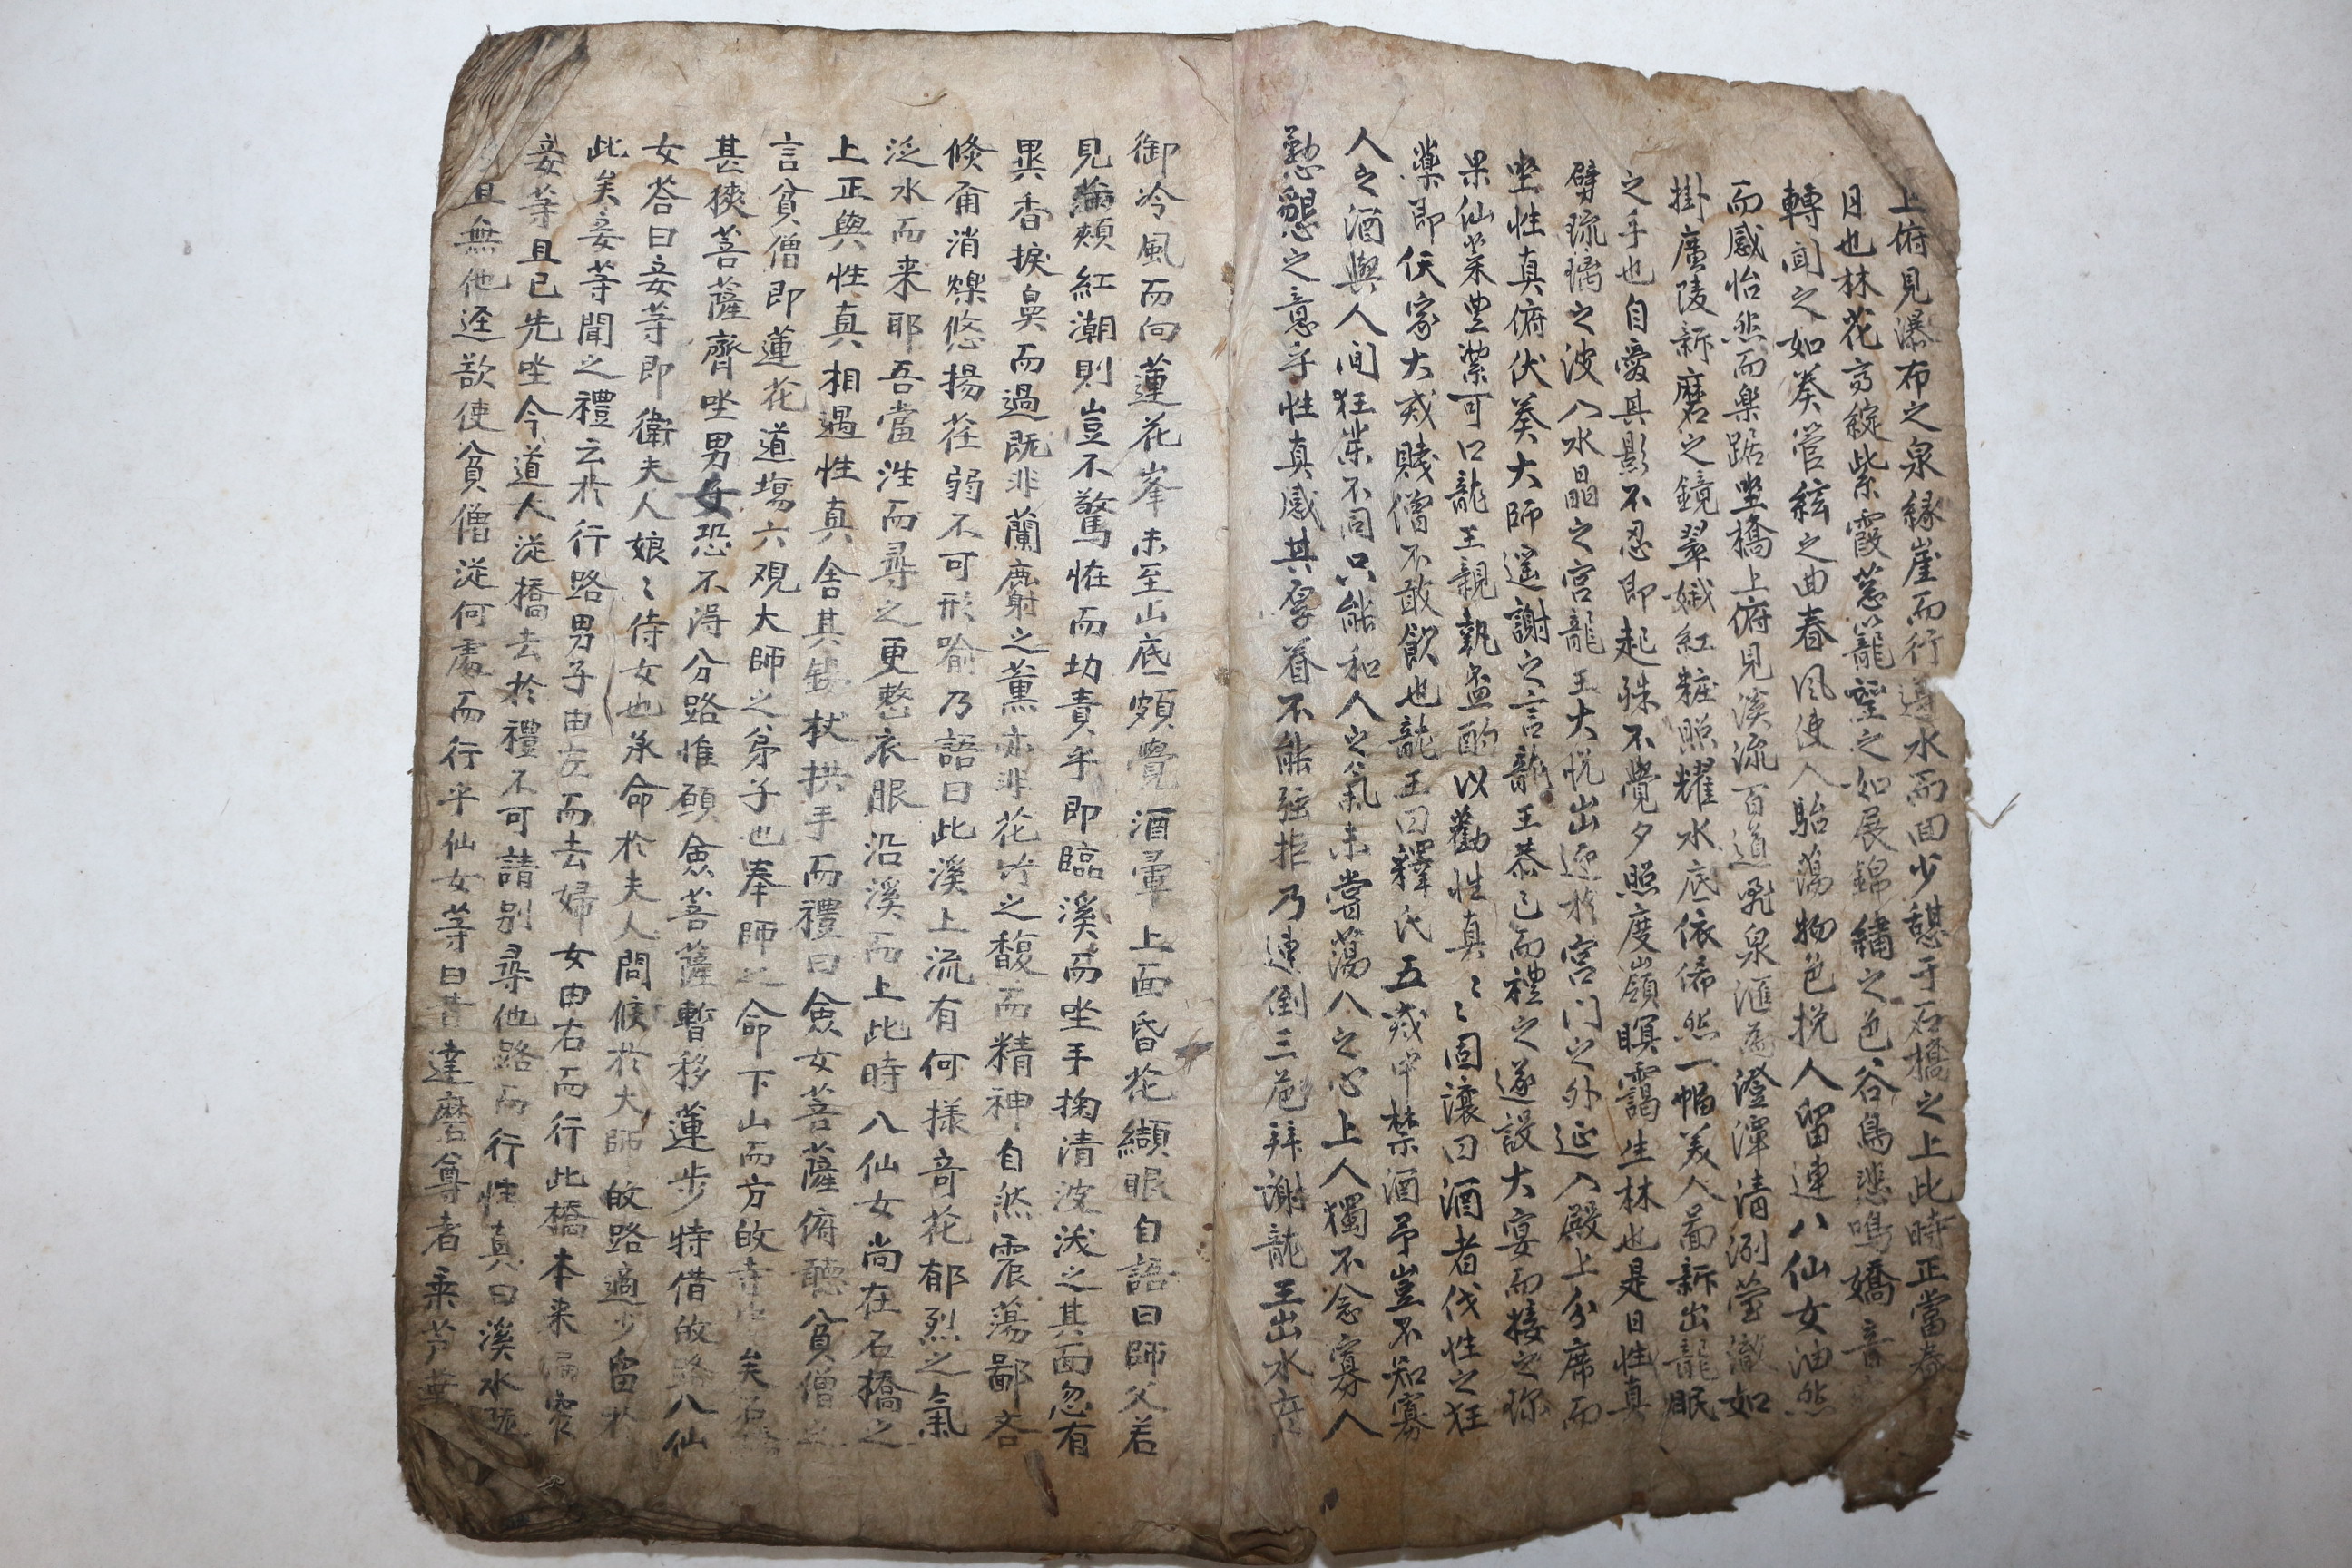 上俯見瀑布之泉緣崖而行遵水而回少憩于石橋之上此時正當春
月也林花齊綻紫霞葱籠望之如展錦繡之色谷鳥悲鳴嬌音
轉聞之如奏管絃之曲春風使人駘蕩物色挽人留連八仙女油然
而感怡然而樂踞坐橋上俯見溪流百道飛泉滙為澄潭清冽瑩澈如
掛廣陵新磨之鏡翠娥紅粧照耀水底依俙然一幅美人圖新出龍眠
之手也自愛其影不忍即起殊不覺夕照度嶺暝靄生林也是日性真
劈琉璃之波入水晶之宮龍王大悅出迎於宮门之外延入殿上分席而
坐性真俯伏奏大師遥謝之言龍王恭已而禮之遂設大宴而接之珎
果仙菜豊潔可口龍王親執盃酌以勸性真〻〻固讓曰酒者伐性之狂
藥即仸家大戒賤僧不敢飲也龍王曰釋氏五戒中禁酒予豈不知寡
人之酒與人间狂藥不同只能和人之氣未嘗蕩人之心上人獨不念寡人
懃懇之意乎性真感其厚眷不能强拒乃連倒三巵拜謝龍王出水府
御冷風而向蓮花峯未至山底頗覺酒暈上面昏花纈眼自語曰師父若
見滿頰紅潮則豈不驚恠而切責乎即臨溪而坐手掬清波沃之其面忽有
異香捩鼻而過既非蘭麝之薰亦非花竹之馥而精神自然震蕩鄙吝
倏甭消爍悠揚荏弱不可形喻乃語曰此溪上流有何樣奇花郁烈之氣
泛水而来耶吾當徃而尋之更整衣服沿溪而上此時八仙女尚在石橋之
上正與性真相遇性真舍其錫杖拱手而禮曰僉女菩薩俯聽貧僧之
言貧僧即蓮花道塲六观大師之弟子也奉師之命下山而方故寺中矣石橋
甚狹菩薩齊坐男女恐不淂分路惟願僉菩薩暫移蓮步特借故路八仙
女答曰妾等即衛夫人娘〻侍女也承命於夫人問候於大師故路適少留於
此矣妾等聞之禮云於行路男子由左而去婦女由右而行此橋本来漏窄
妾等且已先坐今道人從橋去於禮不可請别尋他路而行性真曰溪水
且無他逕欲使貧僧從何處而行乎仙女等曰昔達磨尊者乘芦葉